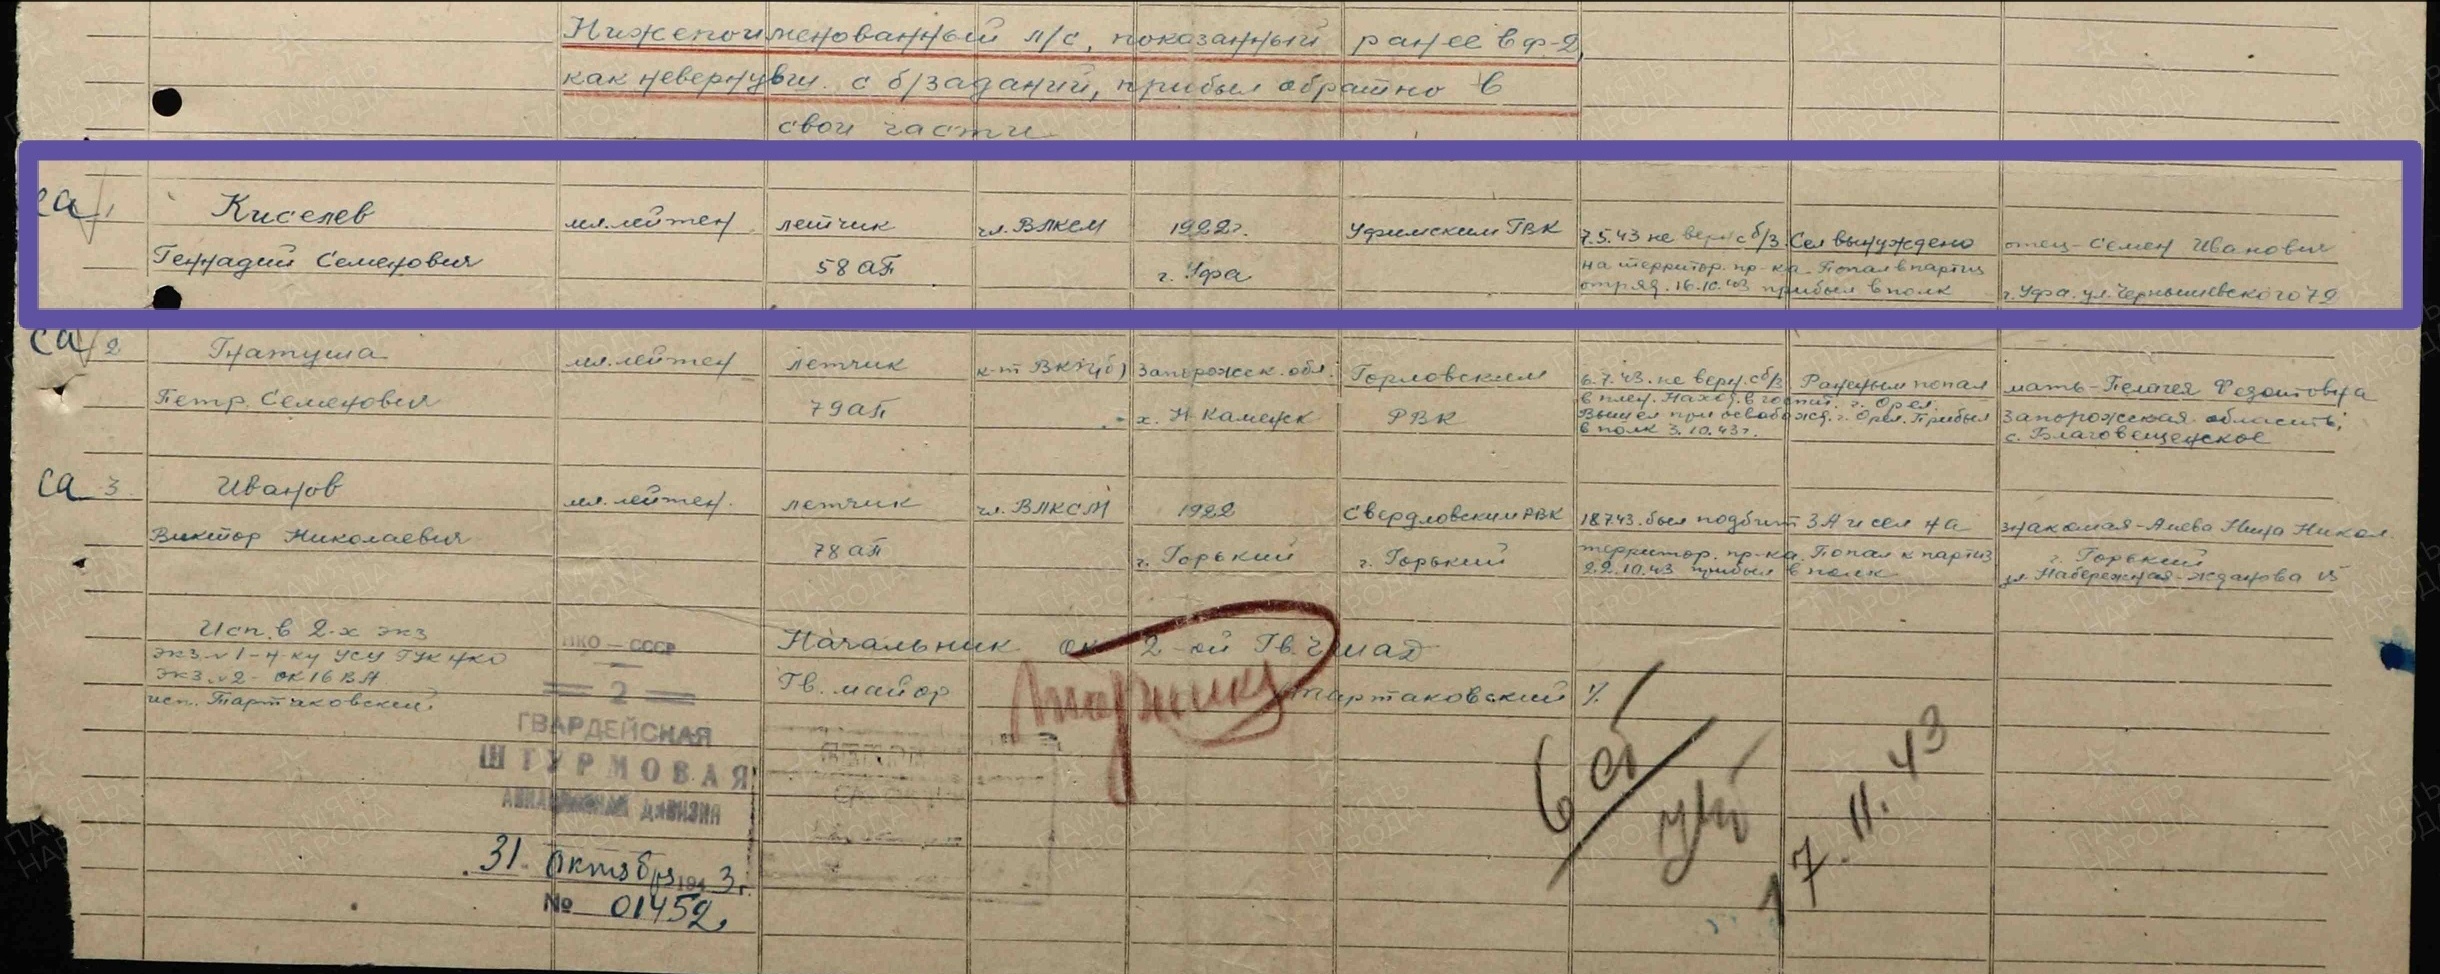 Нижепоименованный л/с, показанный ранее в ф-2,
как невернувш. с б/заданий, прибыл обратно в
свои части
са 1 Киселев мл.лейтен летчик чл. ВЛКСМ 1922г. Уфимским ГВК 7.5.43 не верн с б/з. Сел вынуждено отец - Семен Иванович
Геннадий Семенович 58 АП г. Уфа на территор. пр-ка. Попал в партиз
отряд. 16.10.43 прибыл в полк г. Уфа. ул. Чернышевского 79
са 2 Гнатуша мл.лейтен летчик к-т ВКП(б) Запорожск. обл. Горловским 6.7.43. не верн. с б/з Раненым попал мать - Пелагея Федотовна
Петр. Семенович 79 АП х. Н-Каменск РВК в плен. Наход. в госпит. г. Орел. Запорожская область,
Вышел при освобожд. г. Орел. Прибыл с. Благовещенское
в полк 3.10.43г.
са 3 Иванов мл. лейтен. летчик чл. ВЛКСМ 1922 Свердловским РВК 18.7.43. был подбит ЗА и сел на знакомая - Нина Никол.
Виктор Николаевич 78 АП г. Горький г. Горький территор. пр-ка. Попал к партиз г. Горький
22.10.43 прибыл в полк ул. Набережная - Жданова 15
Исп. в 2-х экз
экз. №1 - н-ку УСУ ГУК НКО
экз. №2 - ОК 16 ВА
исп. Тартаковский.
Начальник ОК 2-ой Гв. ШАД
Гв. майор Тартаковский
НКО - СССР
2
ГВАРДЕЙСКАЯ
ШТУРМОВАЯ
АВИАЦИОННАЯ ДИВИЗИЯ
31 Октября 1943г.
№ 01452
17.11.43